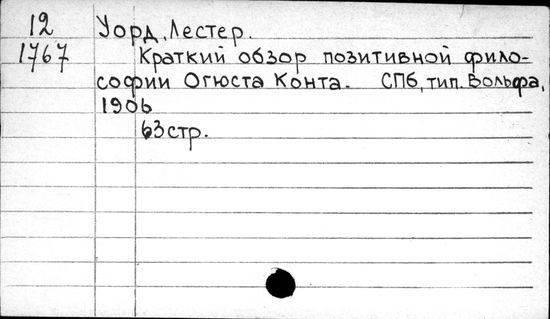 12 Уорд, Лестер.
1767 Краткий обзор позитивной фило-
софии Огюста Конта. СПб, тип. Вольфа,
1906
63 стр.